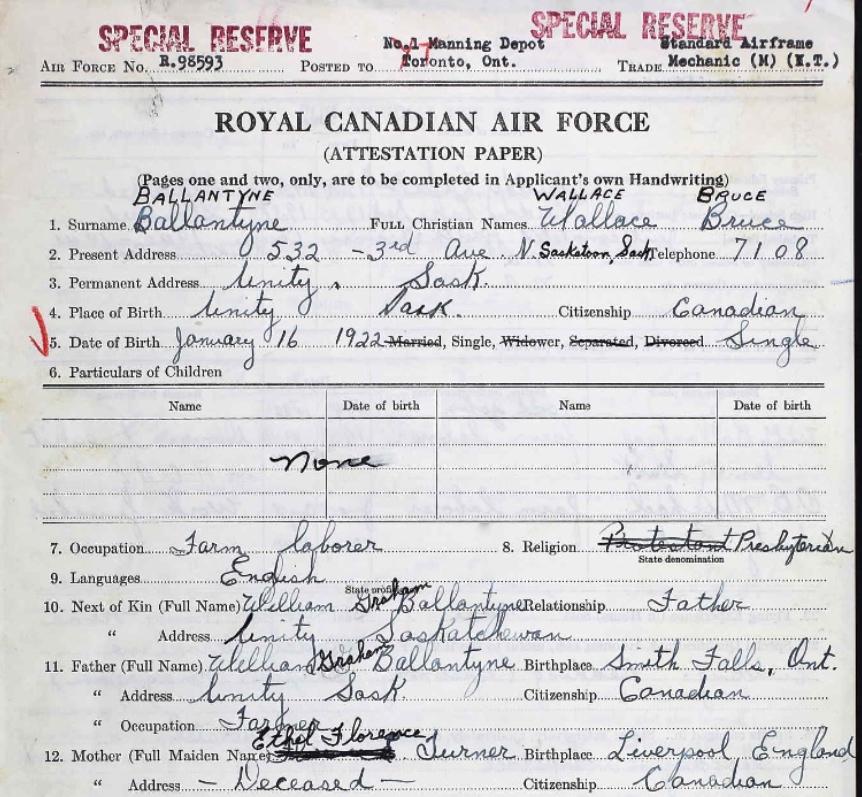 SPECIAL RESERVE SPECIAL RESERVE
No.1 Manning Depot Standard Airframe
AIR FORCE No. R.98593 POSTED TO Toronto, Ont. TRADE Mechanic (M) (E.T.)
ROYAL CANADIAN AIR FORCE
(ATTESTATION PAPER)
(Pages one and two, only, are to be completed in Applicant's own Handwriting)
BALLANTYNE WALLACE BRUCE
1. Surname Ballantyne FULL Christian Names Wallace Bruce
2. Present Address 532 - 3rd Ave N. Saskatoon, Sask Telephone 7108
3. Permanent Address Unity, Sask.
4. Place of Birth Unity Sask. Citizenship Canadian
5. Date of Birth January 16 1922 Married, Single, Widower, Separated, Divorced Single
6. Particulars of Children
Name Date of birth Name Date of birth
None
7. Occupation Farm laborer 8. Religion Protestant Presbyterian
State denomination
9. Languages English
10. Next of Kin (Full Name) William Graham Ballantyne Relationship Father
" Address Unity Saskatchewan
11. Father (Full Name) William Graham Ballantyne Birthplace Smith Falls, Ont.
" Address Unity Sask. Citizenship Canadian
" Occupation Farmer
Ethel Florence
12. Mother (Full Maiden Name) Turner Birthplace Liverpool, England
" Address - Deceased - Citizenship Canadian